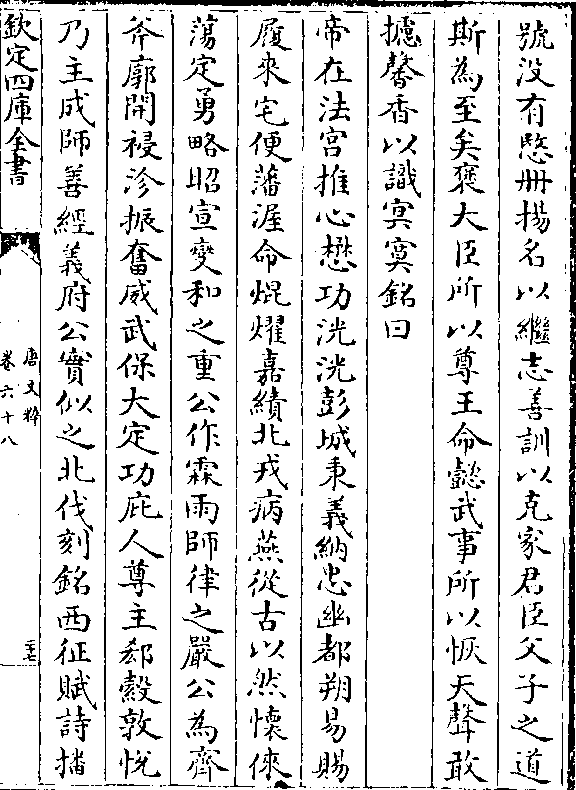 號没有愍册揚名以繼志善訓以克家君臣父子之道
斯為至矣褒大臣所以尊王命懿武事所以恢天聲敢
攄馨香以識冥寞銘曰
帝在法宫推心懋功洸洸彭城秉義納忠幽都朔易賜
履來宅便藩渥命焜燿嘉績北戎病燕從古以然懷倈
蕩定勇略昭宣變和之重公作霖雨師律之嚴公為齊
斧廓開祲沴振奮威武保大定功庇人尊主郄縠敦悦
乃主成師善經義府公實似之北伐刻銘西征賦詩播
欽定四庫全書
唐文粹
卷六十八
三七